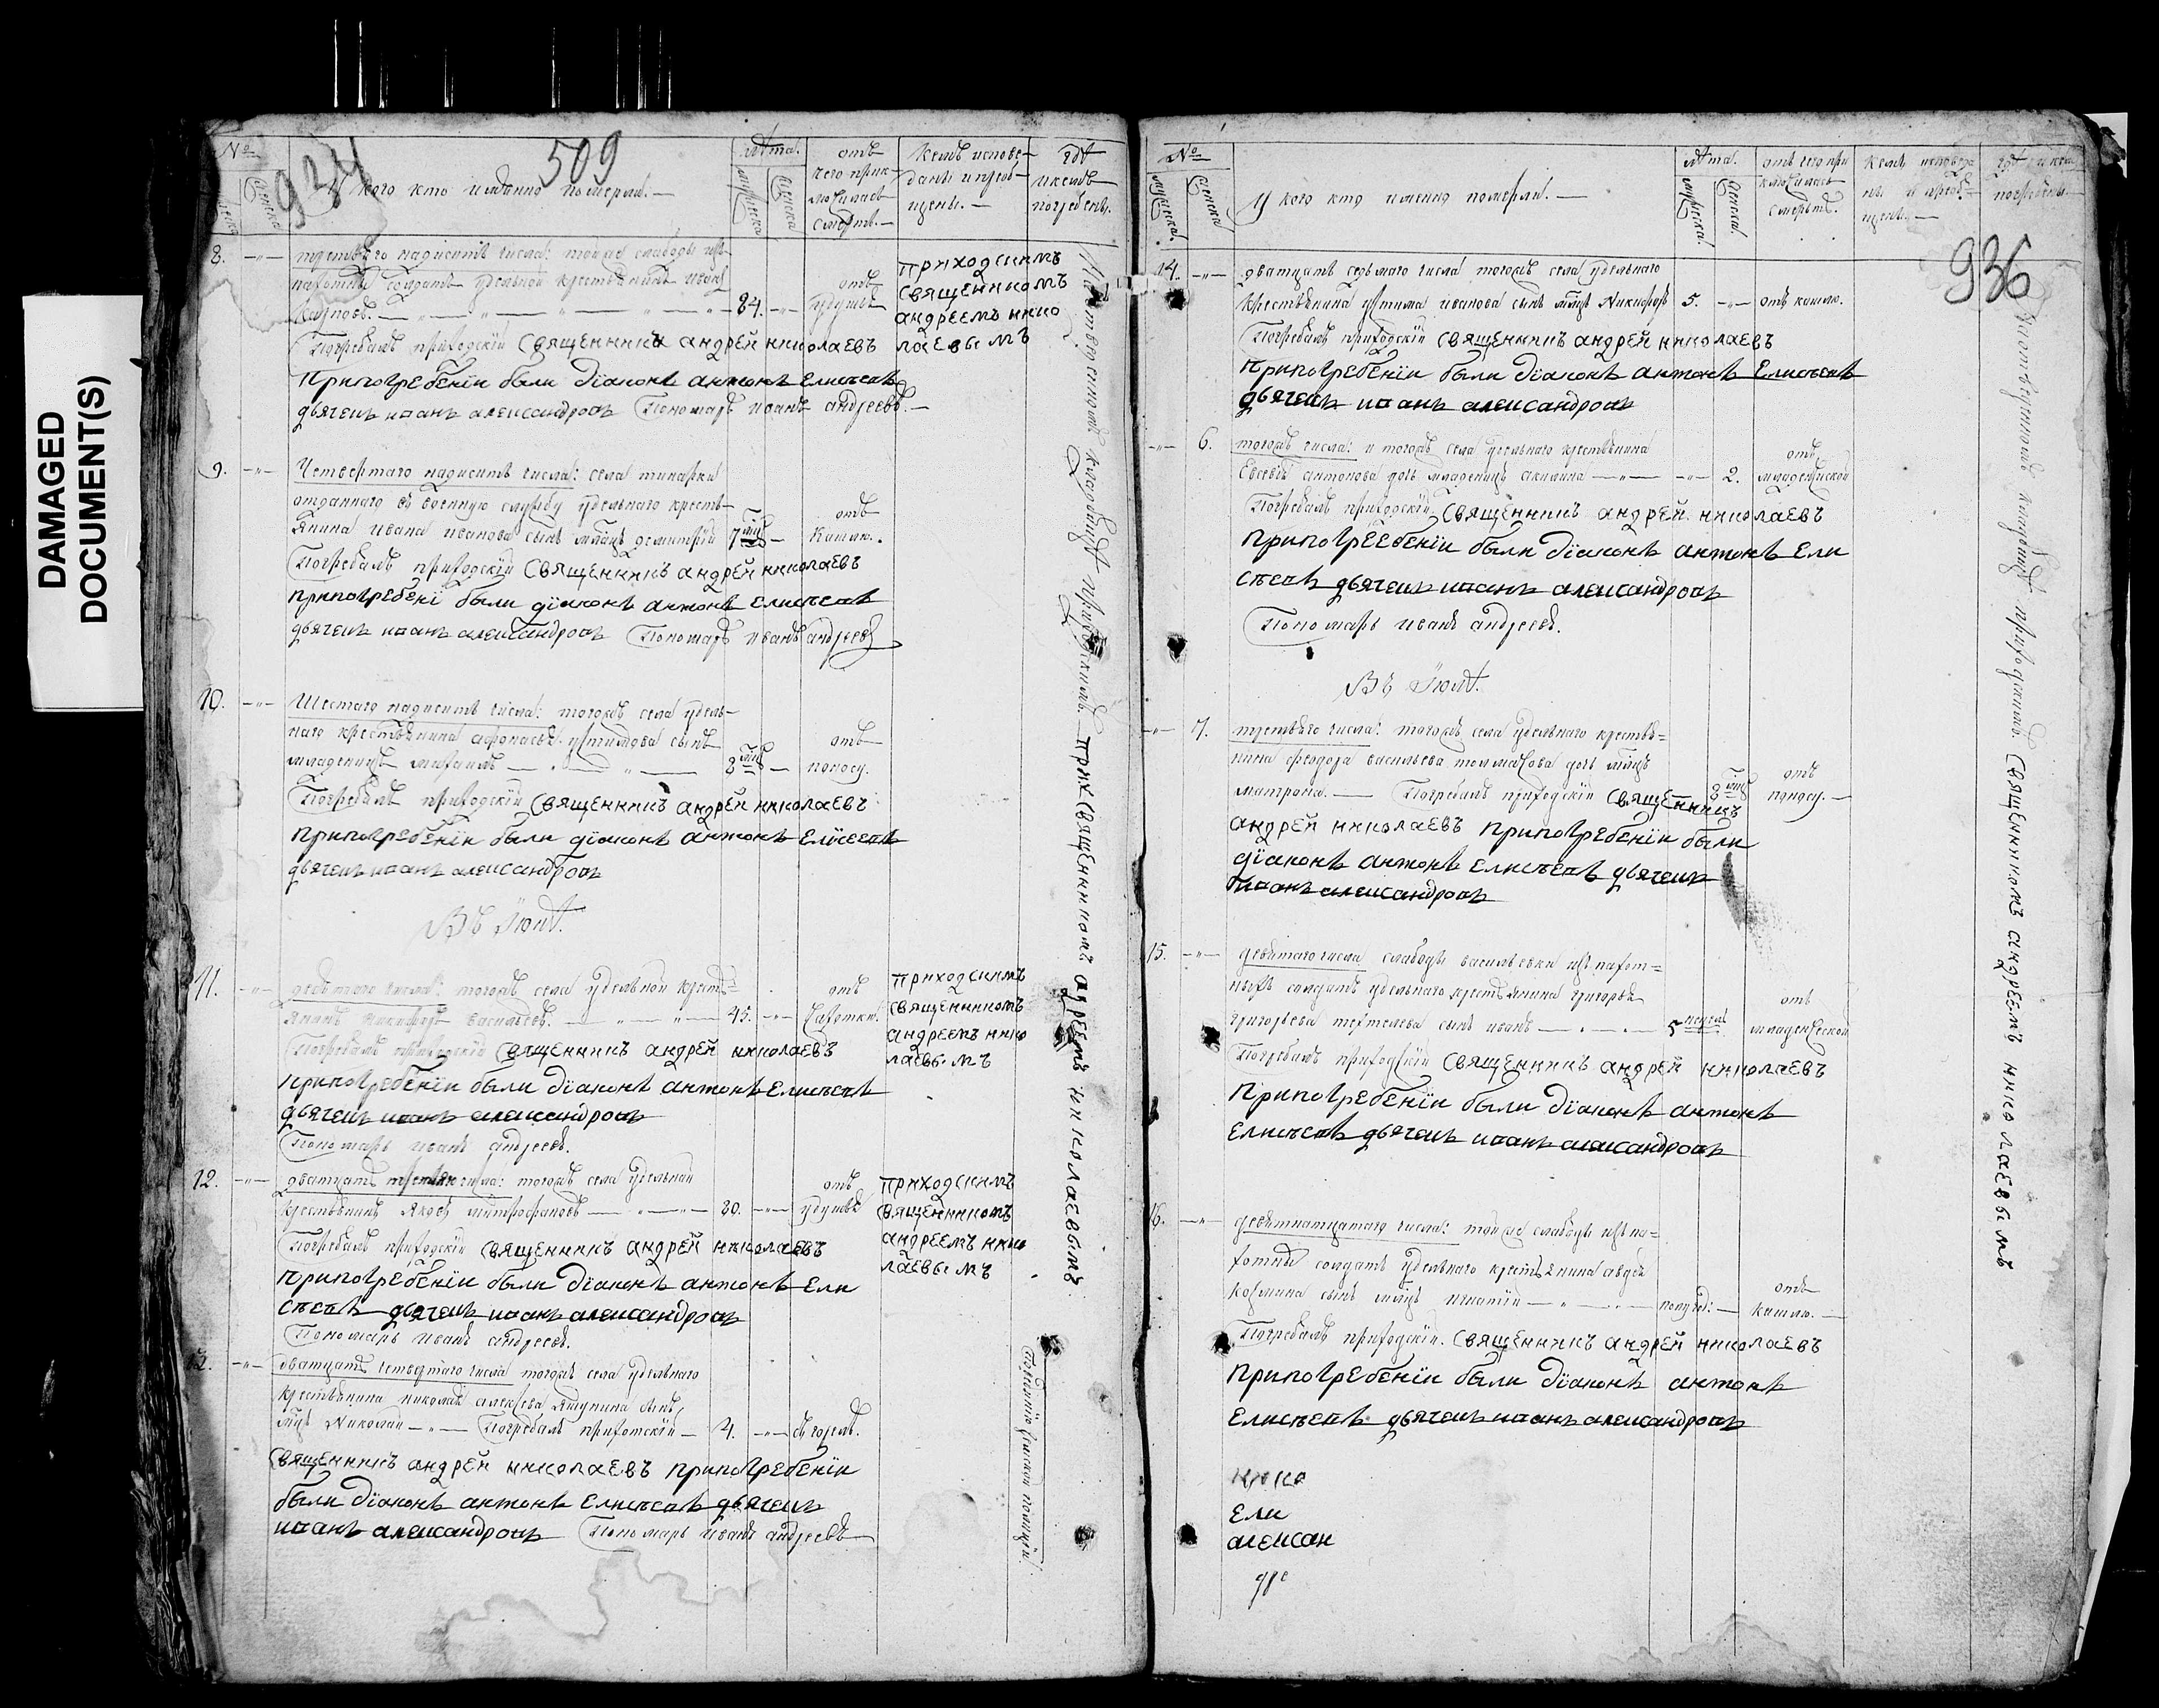 DAMAGED
DOCUMENT(S)
№
934
509
У кого кто имянно померли.
лѣта.
отъ
чего при-
ключилась
смерть.
кемъ испове-
даны и прио-
щены.
гдѣ
и кемъ
погребены.
8.
третьяго надесять числа: тойже слабоды изъ
пахотныхъ солдатъ удельной крестьянинъ Иванъ
Карповъ.
84.
отъ
удушья
приходскимъ
священникомъ
андреемъ нико
лаевымъ
Погребалъ приходскiй священникъ андрей николаевъ
При погребенiи были дiаконъ антонъ Елисѣевъ
дьячекъ иванъ александровъ Пономарь иванъ андреевъ.
9.
Четвертаго надесять числа: села тинарки
отданнаго въ военную службу удельнаго кресть-
янина ивана иванова сынъ млнцъ димитрiй
7 мцъ
отъ
кашлю.
Погребалъ приходскiй священникъ андрей николаевъ
при погребенi были дiаконъ антонъ елисѣевъ
дьячекъ иванъ александровъ Пономарь иванъ андреевъ
10.
Шестаго надесять числа: тогожъ села удель-
наго крестьянина афонасья устимова сынъ
младенецъ михаилъ
8 мцъ
отъ
поносу.
Погребалъ приходскiй священникъ андрей николаевъ
при погребенiи были дiаконъ антонъ Елисеевъ
дьячекъ иванъ александровъ
Въ Iюнѣ.
11.
девятаго числа: тогожъ села удельной кресть-
янинъ никифоръ васильевъ.
45.
отъ
чахотки.
приходскимъ
священникомъ
андреемъ нико
лаевымъ
Погребалъ приходскiй священникъ андрей николаевъ
при погребенiи были дiаконъ антонъ Елисѣевъ
дьячекъ иванъ александровъ
Пономарь иванъ андреевъ.
12.
дватцать третьяго числа: тогожъ села удельной
крестьянинъ Яковъ митрофановъ
30.
отъ
удушья
приходскимъ
священникомъ
андреемъ нико
лаевымъ
Погребалъ приходскiй священникъ андрей николаевъ
При погребенiи были дiаконъ антонъ Ели
сѣевъ дьячекъ иванъ александровъ
Пономарь иванъ андреевъ.
13.
дватцать четвертаго числа тогожъ села удельнаго
крестьянина николая алексѣева сынъ
млцъ Николай Погребалъ прихотскiй
4.
священникъ андрей николаевъ при погребенiи
были дiаконъ антонъ Елисѣевъ дьячекъ
иванъ александровъ Пономарь иванъ андреевъ
На отведенномъ кладбищѣ приходскимъ прих священникомъ андреемъ николаевымъ
№
У кого кто имянно померли.
лѣта.
отъ чего при
ключилась
смерть.
кемъ исповеда
ны и приоб-
щены.
гдѣ и кемъ
погребены
936
14.
дватцать седьмаго числа тогожъ села удельнаго
крестьянина устима иванова сынъ млнцъ Никифоръ
5.
отъ кашлю.
Погребалъ приходскiй священникъ андрей николаевъ
При погребенiи были дiаконъ антонъ Елисѣевъ
дьячекъ иванъ александровъ
6.
тогожъ числа: и тогожъ села удельнаго крестьянина
Евсевiя антонова дочь младенецъ акилина
2.
отъ
младенческой
Погребалъ приходскiй священникъ андрей николаевъ
При погреебенiи были дiаконъ антонъ Ели
сѣевъ дьячекъ иванъ александровъ
Пономарь иванъ андреевъ.
Въ Iюлѣ.
7.
третьяго числа: тогожъ села удельнаго кресть=
янина феодора васильева толмачова дочь млнцъ
матрона. Погребалъ приходскiй священникъ
8 мцъ
отъ
поносу.
андрей николаевъ при погребенiи были
дiаконъ антонъ елисѣевъ дьячекъ
иванъ александровъ
15.
девятаго числа слабоды васильевки изъ пахот=
ныхъ солдатъ удельнаго крестьянина григорья
григорьева сынъ иванъ
5 недель
отъ
младенческой
Погребалъ приходскiй священникъ андрей николаевъ
При погребенiи были дiаконъ антонъ
Елисѣевъ дьячекъ иванъ александровъ
16.
девятнатцатаго числа: тойже слабоды изъ па-
хотныхъ солдатъ удельнаго крестьянина авдея
козмина сынъ млнцъ игнатiй
полугод:
отъ
кашлю.
Погребалъ приходскiй. священникъ андрей николаевъ
При погребенiи были дiаконъ антонъ
Елисѣевъ дьячекъ иванъ александровъ
нико
Ели
алексан
На отведенномъ кладбищѣ приходскимъ священникомъ андреемъ николаевымъ